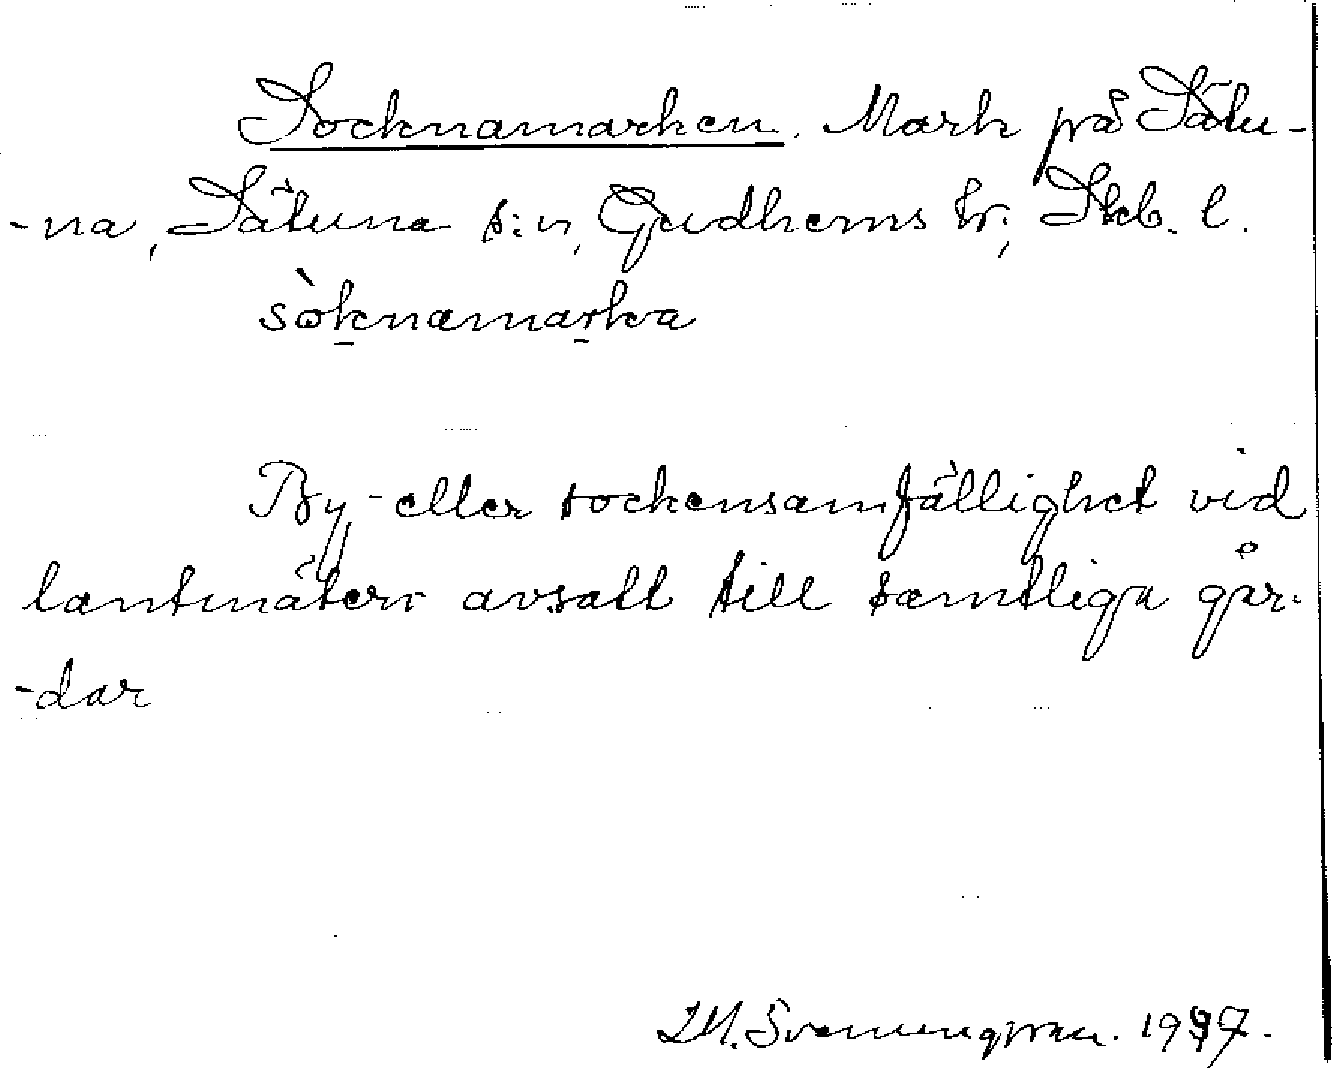 Socknamarken. Mark på Sätu-
-na, Sätuna s:n, Gudhems hr; Skb. l.
sòknamarka
By- eller sockensamfällighet vid
lantmäteri avsatt till samtliga går-
-dar